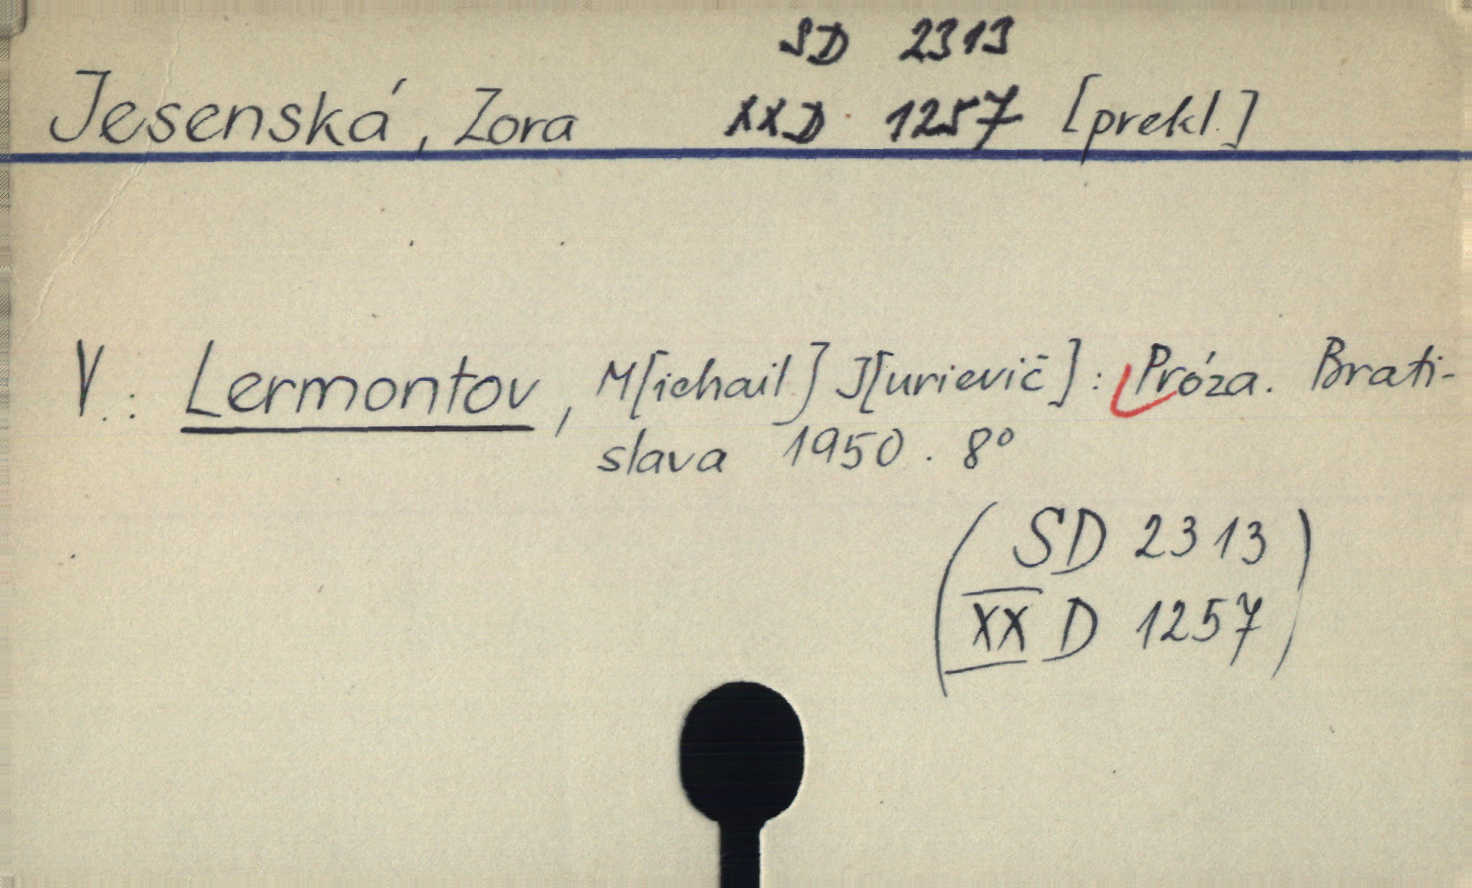 SD 2313
Jesenská, Zora XXD 1257 [prekl.]
V.: Lermontov, M[ichail] J[urievič]: Próza. Brati-
slava 1950. 8°
(SD 2313
XX D 1257)